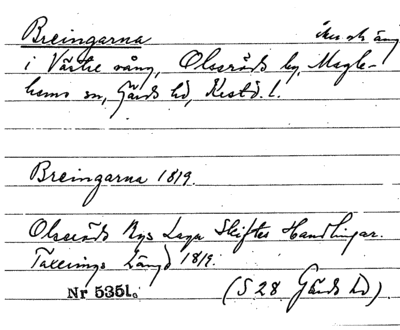 Breingarna åker och äng
i Västre vång, Olseröds by, Magle-
hems sn, Gärds hd, Kristd. l.
Breingarna 1819.
Olseröds Bys Laga Skiftes Handlingar.
Taxerings Längd 1819.
Nr 5351. (S 28 Gärds hd)